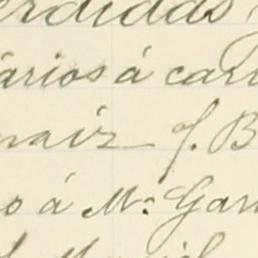 erdidas
ários á car
maiz J. B
o á Mc Gar